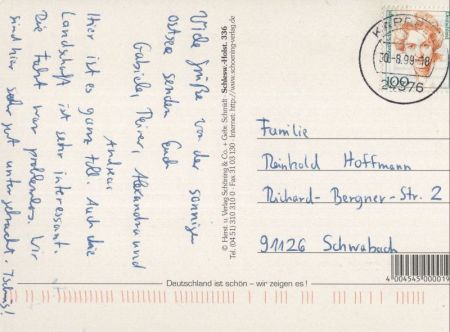 Viele Grüße von der sonnigen
Ostsee senden Euch
Gabriele, Reiner, Alexandra und
Andreas
Hier ist es ganz toll. Auch die
Landschaft ist sehr interessant.
Die Fahrt war problemlos. Wir
sind hier sehr gut untergebracht. Tschüs!
© Herst. u. Verlag Schöning & Co. + Gebr. Schmidt · Schlesw.-Holst. 336
Tel. (04 51) 310 310 0 · Fax 31 03 130 Internet: http://www.schoening-verlag.de
KAPPE
30.-8.99-18
24376
100
Familie
Reinhold Hoffmann
Richard-Bergner-Str. 2
91126 Schwabach
4 004545 000019
Deutschland ist schön – wir zeigen es!